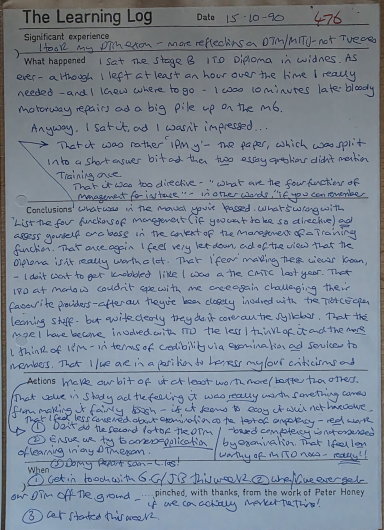 The Learning Log Date 15-10-90 476
Significant experience
I took my DTM exam - more reflections on DTM/MITD - not Tweares
What happened I sat the Stage B ITD Diploma in Widnes. As
ever - although I left at least an hour over the time I really
needed - and I knew where to go - I was 10 minutes late: bloody
motorway repairs and a big pile up on the M6.
Anyway, I sat it, and I wasn't impressed...
That it was rather 'IPM y' - the paper, which was split
into a short answer bit and then two essay questions didn't mention
Training once
That it was too directive - "what are the four functions of
management for instance" - in other words, "if you can remember
Conclusions what was in the manual you've passed". What's wrong with
"List the four functions of management (if you want to be so directive) and
assess yourself or a boss in the context of the management of a Training
function. That once again I feel very let down and of the view that the
Diploma isn't really worth a lot. That I fear making these views known,
- I don't want to get knobbled like I was a the CMTC last year. That
ITD at Marlow couldn't cope with me once again challenging their
favourite providers - after all they've been closely involved with the open
learning stuff - but quite clearly they do it cover all the syllabus. That the
more I have become involved with ITD the less I think of it and the more
I think of IPM - in terms of credibility via examination and services to
members. That I/we are in a position to harness my/our criticisms and
Actions make our bit of it at least worth more/better than others.
That value in study and the feeling it was really worth something comes
from making it fairly tough - if it seems too easy it will not have value.
That I feel less concerned about examination as the test of competency - real work
① Don't do the second lot of the DTM based competency is not enhanced
② Ensure we try to assess application by examination. That I feel less
of learning in any DTM exam. worthy of MITD now - really!!
When
① Get in touch with G.G/JB this week ② When/if we ever get
our DTM off the ground - ....pinched, with thanks, from the work of Peter Honey
if we can actually market the thing!
③ Get started this week